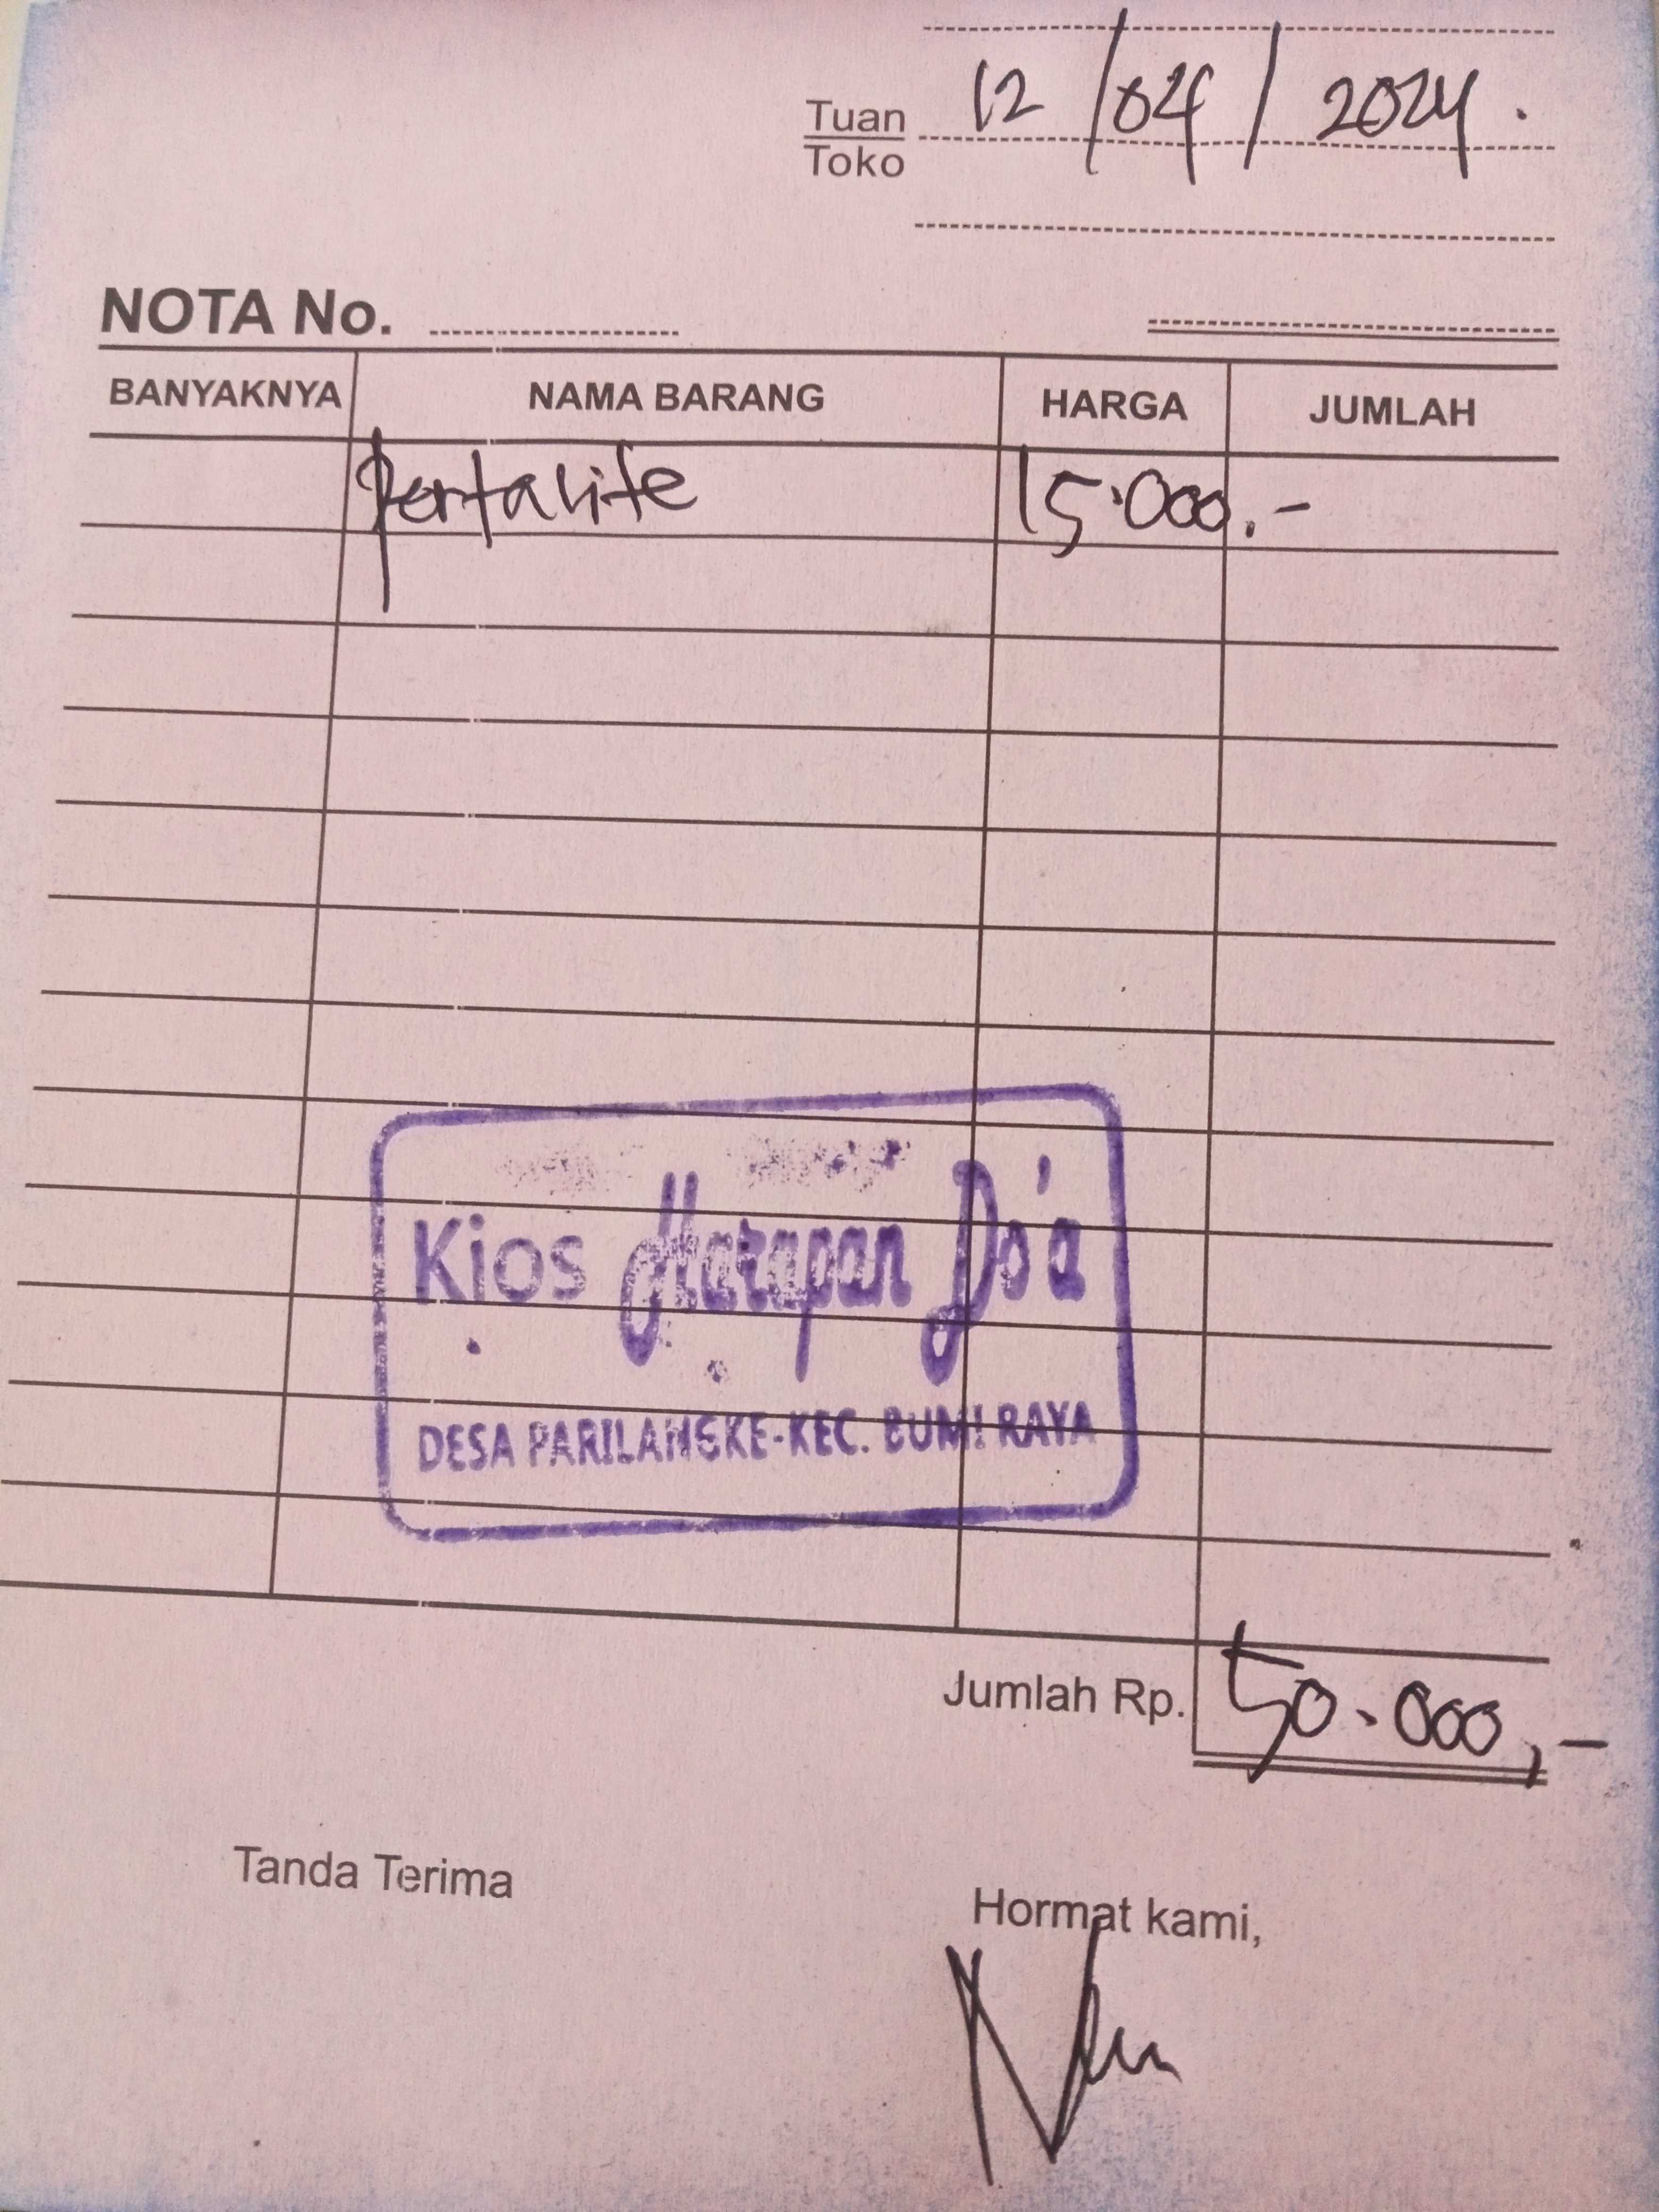 Tuan
Toko
12/04/2024.
NOTA No.
BANYAKNYA NAMA BARANG HARGA JUMLAH
Pertalite 15.000.-
Kios Harapan Do'a
DESA PARILANGKE-KEC. BUMI RAYA
Jumlah Rp. 50.000,-
Tanda Terima
Hormat kami,